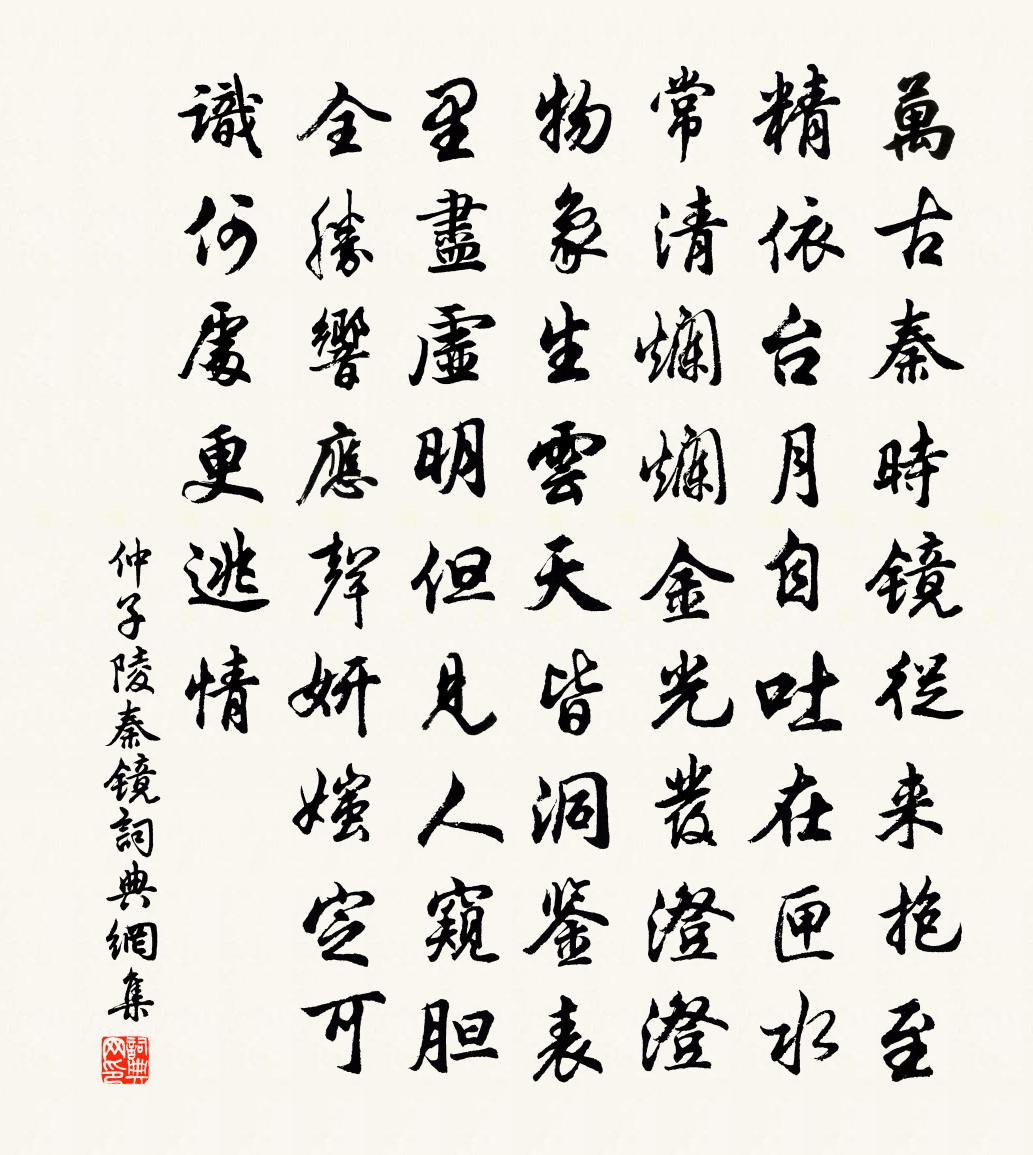 萬古秦時鏡從来抱至
精依台月自吐在匣水
常清爛爛金光發澄澄
物象生雲天皆洞鉴表
里盡虛明但見人窺胆
全勝響應聲妍媸定可
識何處更逃情
仲子陵秦鏡詞典網集
詞典网印